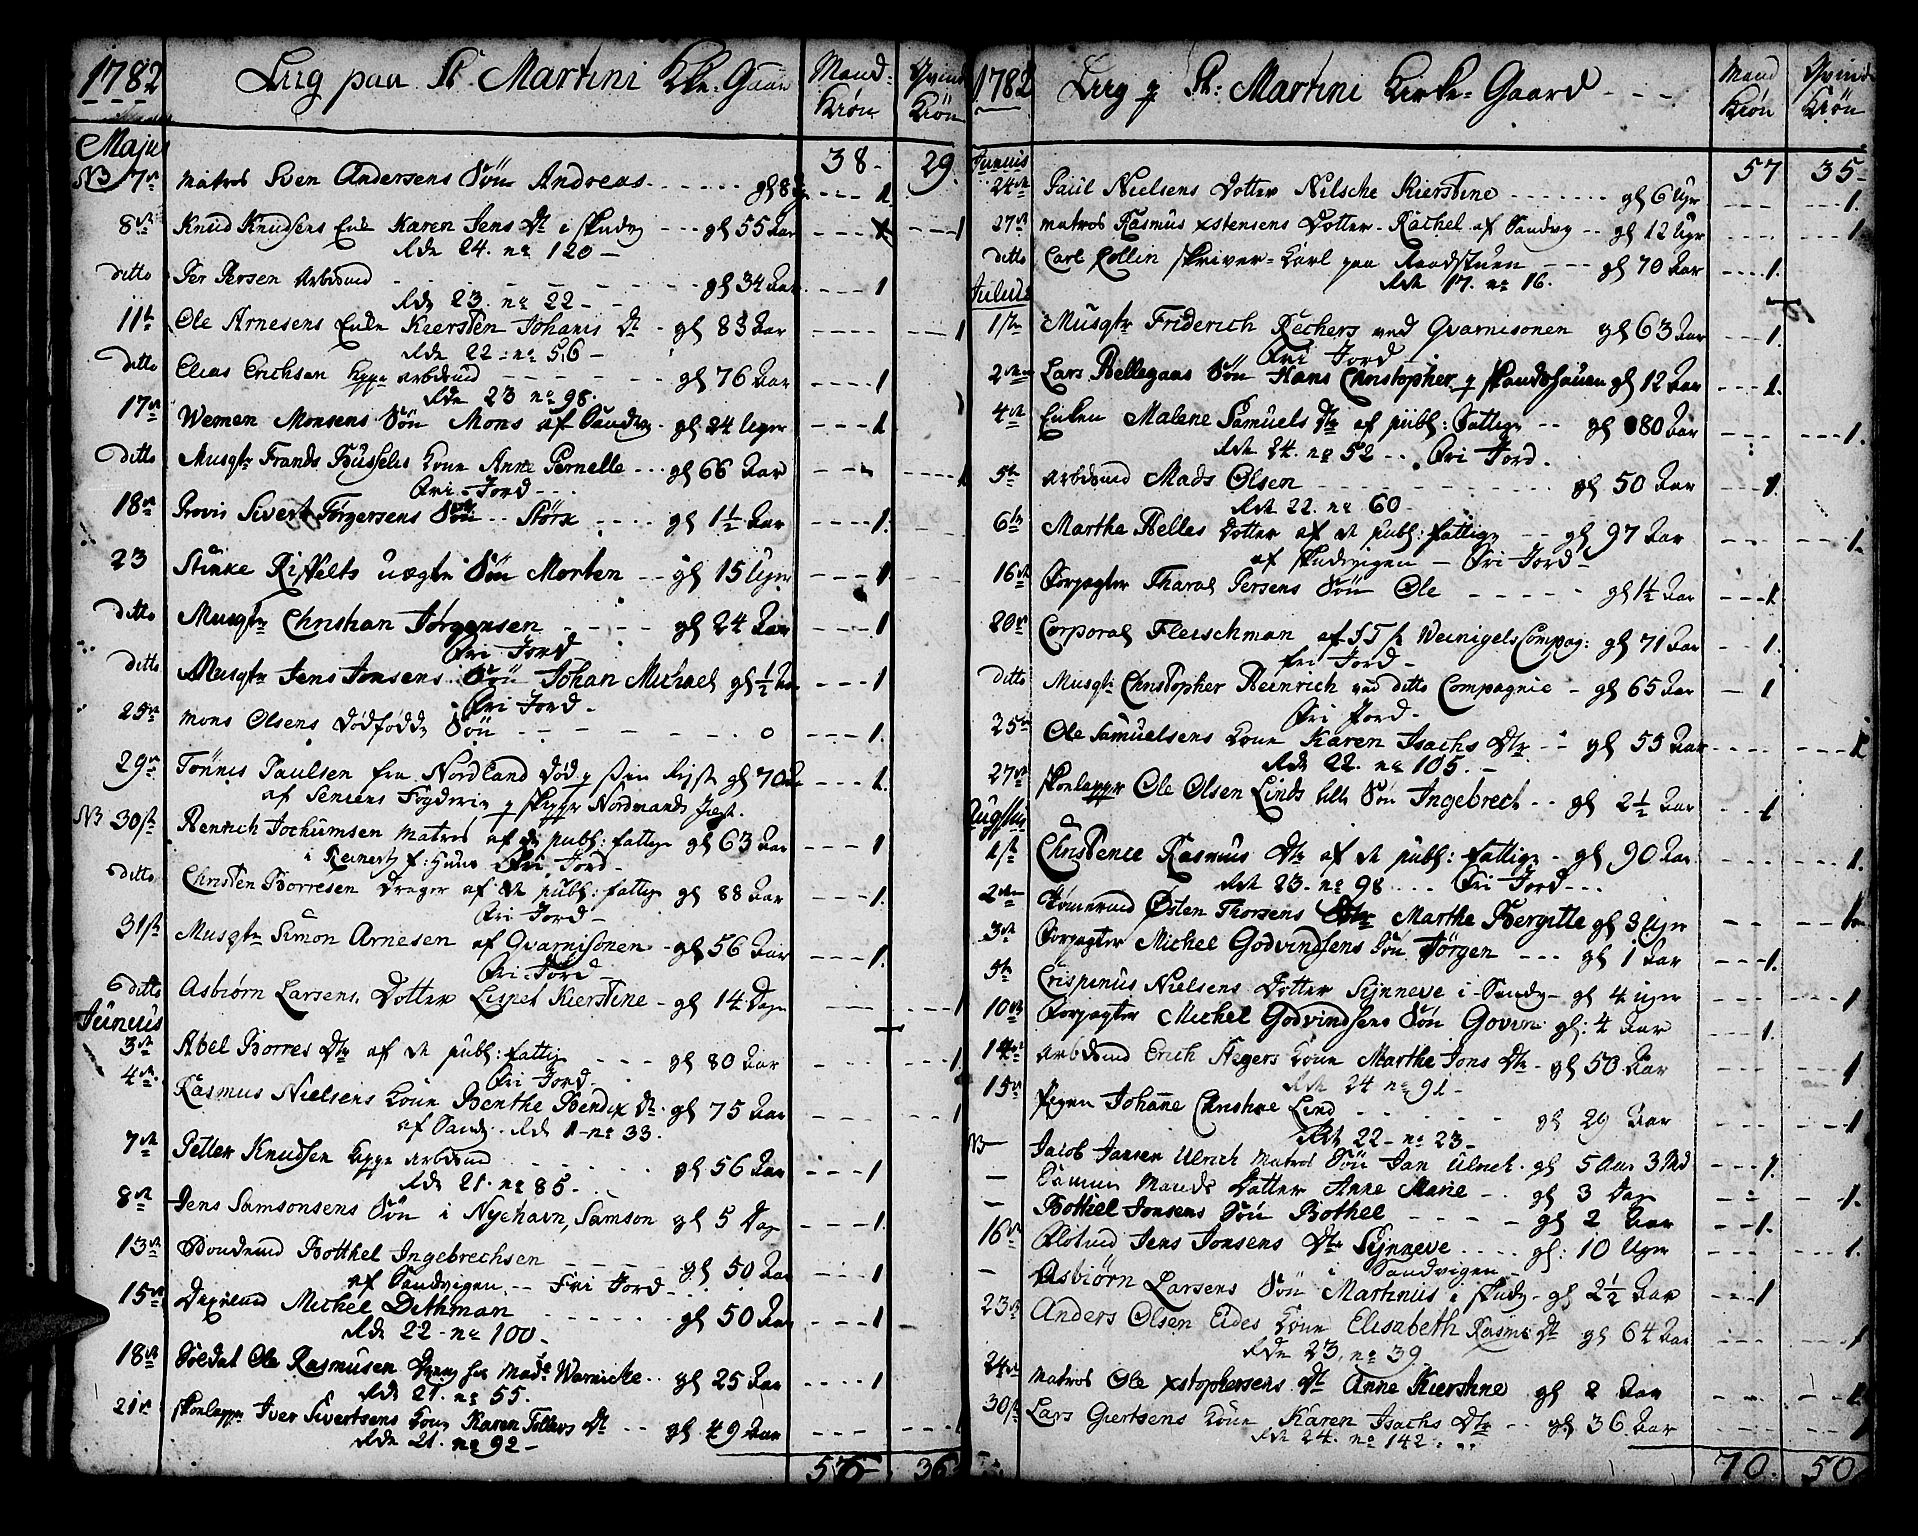 1782 Liig paa St. Martini Kke-Gaar Mand-Kiön Qvind Kiön
Majus 38 - 29.
NB 7de Matros Sven Andersens Sön Andreas - - - gl 8 - - - 1
8de Knud Knudsens Enke Karen Jens Dr i Skudvg - - - gl 55 Aar - - - 1
Rde 24. no 120 -
ditto Per Persen Arbdmd - - - gl 34 Aar - - - 1
Rde 23. no 22 -
11te Ole Arnesens Enke Kiersten Johanis Dr - gl 83 Aar - - - 1
Rde 22 - no 56 -
ditto Elias Erichsen Kggr Arbdmd - - - gl 76 Aar - - - 1
Rde 23 no 98.
17de Wemen Monsens Sön Mons af Sandvg - gl 24 Uger - - - 1
ditto Musqtr Frands Busselis Kone Anne Pernelle - - - gl 66 Aar - - - 1
Fri - Jord - - -
18de Provis Sivert Törgersens Sön Störk - - - gl 1½ Aar - - - 1.
23 Stinke Riffelts uægte Sön Morten - - gl 15 Uger - - - 1
ditto Musqtr Christian Jörgensen - - - gl 24 Aar - - - 1
Fri Jord
ditto Musqtr Jens Jonsens Sön Johan Michael gl ½ Aar - - - 1
Fri Jord -
25de Mons Olsens Dödfödde Sön - - - 0 - - - 1.
29de Tönnis Paulsen fra Nordland Död p sin Rejse gl 70 - - - 1.
af Seniens Fogderie p Skipper Nordmands Jægt.
NB 30te Henrich Jochumsen Matros af de publ: fattige gl 63 Aar - - - 1
i Reinertz f: Huus Fri Jord -
ditto Christen Borresen Drager af de publ: fattige gl 88 Aar - - - 1.
Fri Jord -
31te Musqtr Simon Arnesen af Gvarnisonen - gl 56 Aar - - - 1.
Fri - Jord -
ditto Asbiörn Larsens Dotter Lispet Kierstine - gl 14 Dage - - - 1
Junius
3de Abel Borres Dr af de publ: fattige - - - gl 80 Aar - - - 1.
Fri Jord -
4de Rasmus Nielsens Kone Benthe Bendix Dr. gl 75 Aar - - - 1
af Sandvg. Rde 1 - no 33.
7de Petter Knudsen Kggr Arbdmd - - - gl 56 Aar - - - 1
Rde 21. no 85 -
8de Jens Samsonsens Sön i Nyehavn, Samson gl 5 Dage - - - 1.
13de Bondemd Botthel Ingebrechsen - - - gl 50 Aar - - - 1
af Sandvigen - - Fri Jord -
15de Michel Dethman - - - gl 50 Aar - - - 1
Rde 22 - no 100 -
18de Soldat Ole Rasmusen Dreng hos Made Warnicke - - gl 25 Aar - - - 1
Rde 21. no 55.
21de Skonlapper Iver Sivertsens Kone Karen Tollevs Dr - - gl 49 Aar - - - 1
Rde 21. no 92 -
57 36
1782 Liig p St: Martini Kirke-Gaard - - - Mand Kiön Qvind Kiön
Junius 57 35 -
24de Paul Nielsens Dotter Nilsche Kierstine - - - gl 6 Uger - - - 1.
27de Matros Rasmus Xstensens Dotter - Rachel af Sandvg - - gl 12 Uger - - - 1
ditto Carl Collin Skriver-Karl paa Raadstuen - - - gl 70 Aar - - - 1.
Rde 17. no 16.
Julius
1ste Musqtr Friderich Rechers ved Gvarnisonen gl 63 Aar - - - 1.
Fri Jord
2den Lars Hellegaas Sön Hans Christopher p Skandsehauen gl 12 Aar - - - 1.
4de Enken Malene Samuels Dr af publ: Fattige - - gl 80 Aar - - - 1.
Rde 24. no 52 - . Fri Jord.
5te Arbdmd Mads Olsen - - - gl 50 Aar - - - 1.
Rde 22. no 60 -
6te Marthe Helles Dotter af de publ: fattige - - gl 97 Aar - - - 1.
af Skudevigen - Fri Jord -
16de Forpagter Tharal Persens Sön Ole - - - gl 1½ Aar - - - 1
20de Corporal Fleischman af Weinigels Compag: gl 71 Aar - - 1
fri Jord -
ditto Musqtr Christopher Heinrich ved ditto Compagnie - gl 65 Aar - 1
Fri Jord -
25de Ole Samuelsens Kone Karen Isachs Dr - - gl 55 Aar - - - 1
Rde 22. no 105. -
27de Skonlapper Ole Olsen Linds lille Sön Ingebrech - - gl 2½ Aar - - 1
Augstus
1ste Christence Rasmus Dr af de publ: fattige - gl 90 Aar - - - 1.
Rde 23. no 98 - - - Fri Jord - - -
2den Tömermd Östen Thorsens Dtr Marthe Bergitte gl 3 Uger - - - 1
3de Forpagter Michel Godvindsens Sön Jörgen - - - gl 1 Aar - - - 1.
5te Crispinus Nielsens Dotter Synneve i Sandv - gl 4 uger - - - 1
10de Forpagter Michel Godvindsens Sön Goven gl: 4 Aar - - - 1.
14de Arbdmd Erich Hegers Kone Marthe Jons Dr - gl 50 Aar - - - 1
Rde 24 no 91 -
15de Pigen Johanne Christine Lind - - - gl 29 Aar - - - 1
Rde 22 - no 23 -
NB - Jacob Jansen Ulrich Matros Sön Jan Ulrich. gl 5 Aar 3 Md - - - 1.
- Mands Datter Anne Marie - - gl 3 Dage - - - 1.
- Bottiel Jonsens Sön Bothel - - - gl 2 Aar - - 1.
16de Flötmd Jens Jonsens Dr Synneve - - - gl: 10 Uger - - - 1.
i Sandvigen -
- Asbiörn Larsens Sön Martinus i Skudv - gl 2½ Aar - - - 1
23de Anders Olsen Eides Kone Elisabeth Rasms Dr gl 64 Aar - - - 1
Rde 23. no 39.
24de Matros Ole Xstophersens Dr Anne Kierstine gl 2 Aar - - - 1.
30te Lars Giertsens Kone Karen Isachs Dtr - - gl: 36 Aar - - - 1
Rde 24. no 142 - - -
70. 50